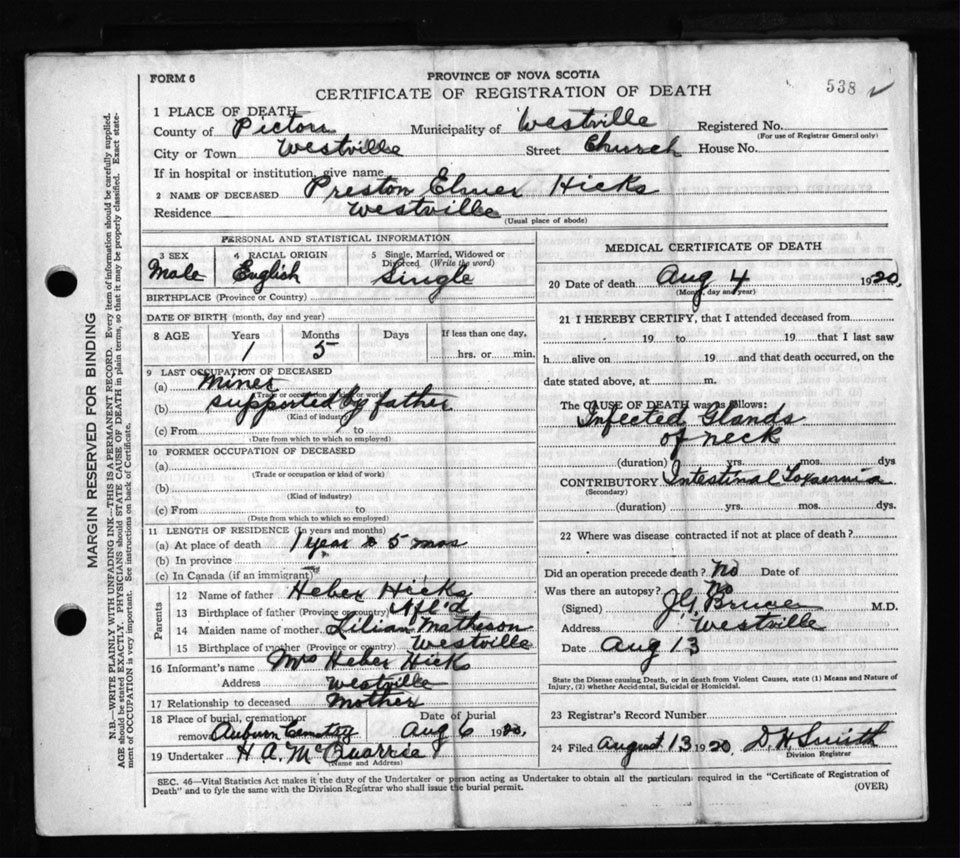 FORM 6
PROVINCE OF NOVA SCOTIA
CERTIFICATE OF REGISTRATION OF DEATH
538
1 PLACE OF DEATH
County of Pictou Municipality of Westville Registered No.
(For use of Registrar General only)
City or Town Westville Street Church House No.
If in hospital or institution, give name
2 NAME OF DECEASED Preston Elmer Hicks
Residence Westville
(Usual place of abode)
PERSONAL AND STATISTICAL INFORMATION
3 SEX 4 RACIAL ORIGIN 5 Single, Married, Widowed or Divorced (Write the word)
Male English Single
BIRTHPLACE (Province or Country)
DATE OF BIRTH (month, day and year)
8 AGE Years Months Days If less than one day,
1 5 hrs. or min.
9 LAST OCCUPATION OF DECEASED
(a) Miner
(Trade or occupation or kind of work)
(b) supported by father
(Kind of industry)
(c) From to
(Date from which to which so employed)
10 FORMER OCCUPATION OF DECEASED
(a)
(Trade or occupation or kind of work)
(b)
(Kind of industry)
(c) From to
(Date from which to which so employed)
11 LENGTH OF RESIDENCE (In years and months)
(a) At place of death 1 year & 5 mos
(b) In province
(c) In Canada (if an immigrant)
Parents
12 Name of father Heber Hicks
13 Birthplace of father (Province or country) Nfl'd
14 Maiden name of mother Lilian Matheson
15 Birthplace of mother (Province or country) Westville
16 Informant's name Mrs Heber Hicks
Address Westville
17 Relationship to deceased Mother
18 Place of burial, cremation or removal Auburn Cemetry Date of burial Aug 6 1920.
19 Undertaker H A. McQuarrie
(Name and Address)
MEDICAL CERTIFICATE OF DEATH
20 Date of death Aug 4 1920.
(Month, day and year)
21 I HEREBY CERTIFY, that I attended deceased from
19 to 19 that I last saw
h alive on 19 and that death occurred, on the
date stated above, at m.
The CAUSE OF DEATH was as follows:
Infected Glands
of neck
(duration) yrs. mos. dys
CONTRIBUTORY Intestinal Toxaemia
(Secondary)
(duration) yrs. mos. dys.
22 Where was disease contracted if not at place of death?
Did an operation precede death? No Date of
Was there an autopsy? No
(Signed) J G. Bruce M.D.
Address Westville
Date Aug 13
State the Disease causing Death, or in death from Violent Causes, state (1) Means and Nature of
Injury, (2) whether Accidental, Suicidal or Homicidal.
23 Registrar's Record Number
24 Filed August 13 1920. D. H. Smith
Division Registrar
SEC. 46—Vital Statistics Act makes it the duty of the Undertaker or person acting as Undertaker to obtain all the particulars required in the "Certificate of Registration of
Death" and to fyle the same with the Division Registrar who shall issue the burial permit.
(OVER)
MARGIN RESERVED FOR BINDING
N.B.—WRITE PLAINLY WITH UNFADING INK—THIS IS A PERMANENT RECORD. Every item of information should be carefully supplied.
AGE should be stated EXACTLY. PHYSICIANS should STATE CAUSE OF DEATH in plain terms, so that it may be properly classified. Exact state-
ment of OCCUPATION is very important. See instructions on back of Certificate.